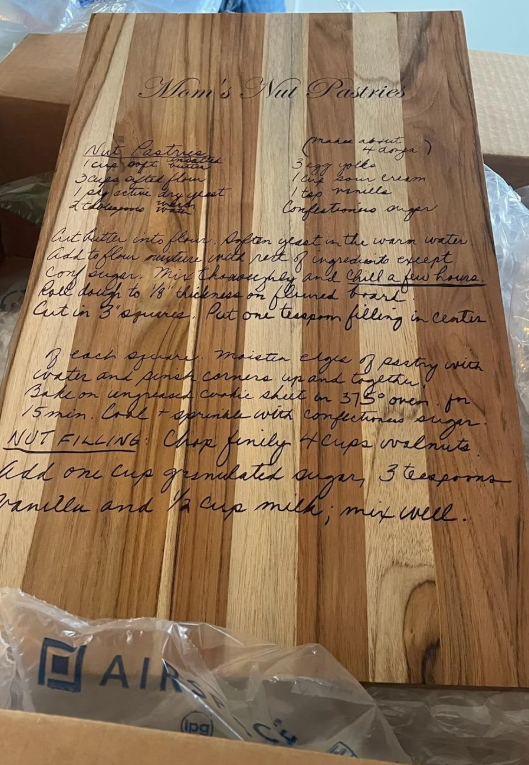 Mom's Nut Pastries
(makes about
4 dozen)
Nut Pastries
1 cup soft unsalted butter
3 cups sifted flour
1 pkg active dry yeast
2 tablespoons warm water
3 egg yolks
1 cup sour cream
1 tsp vanilla
Confectioners sugar
Cut butter into flour. Soften yeast in the warm water
Add to flour mixture with rest of ingredients except
conf sugar. Mix thoroughly and chill a few hours.
Roll dough to 1/8" thickness on floured board
Cut in 3" squares. Put one teaspoon filling in center
of each square. Moisten edges of pastry with
water and pinch corners up and together.
Bake on ungreased cookie sheet in 375° oven for
15 min. Cool + sprinkle with confectioners sugar.
NUT FILLING: Chop finely 4 cups walnuts.
Add one cup granulated sugar, 3 teaspoons
vanilla and 1/2 cup milk; mix well.
AIR
ipg